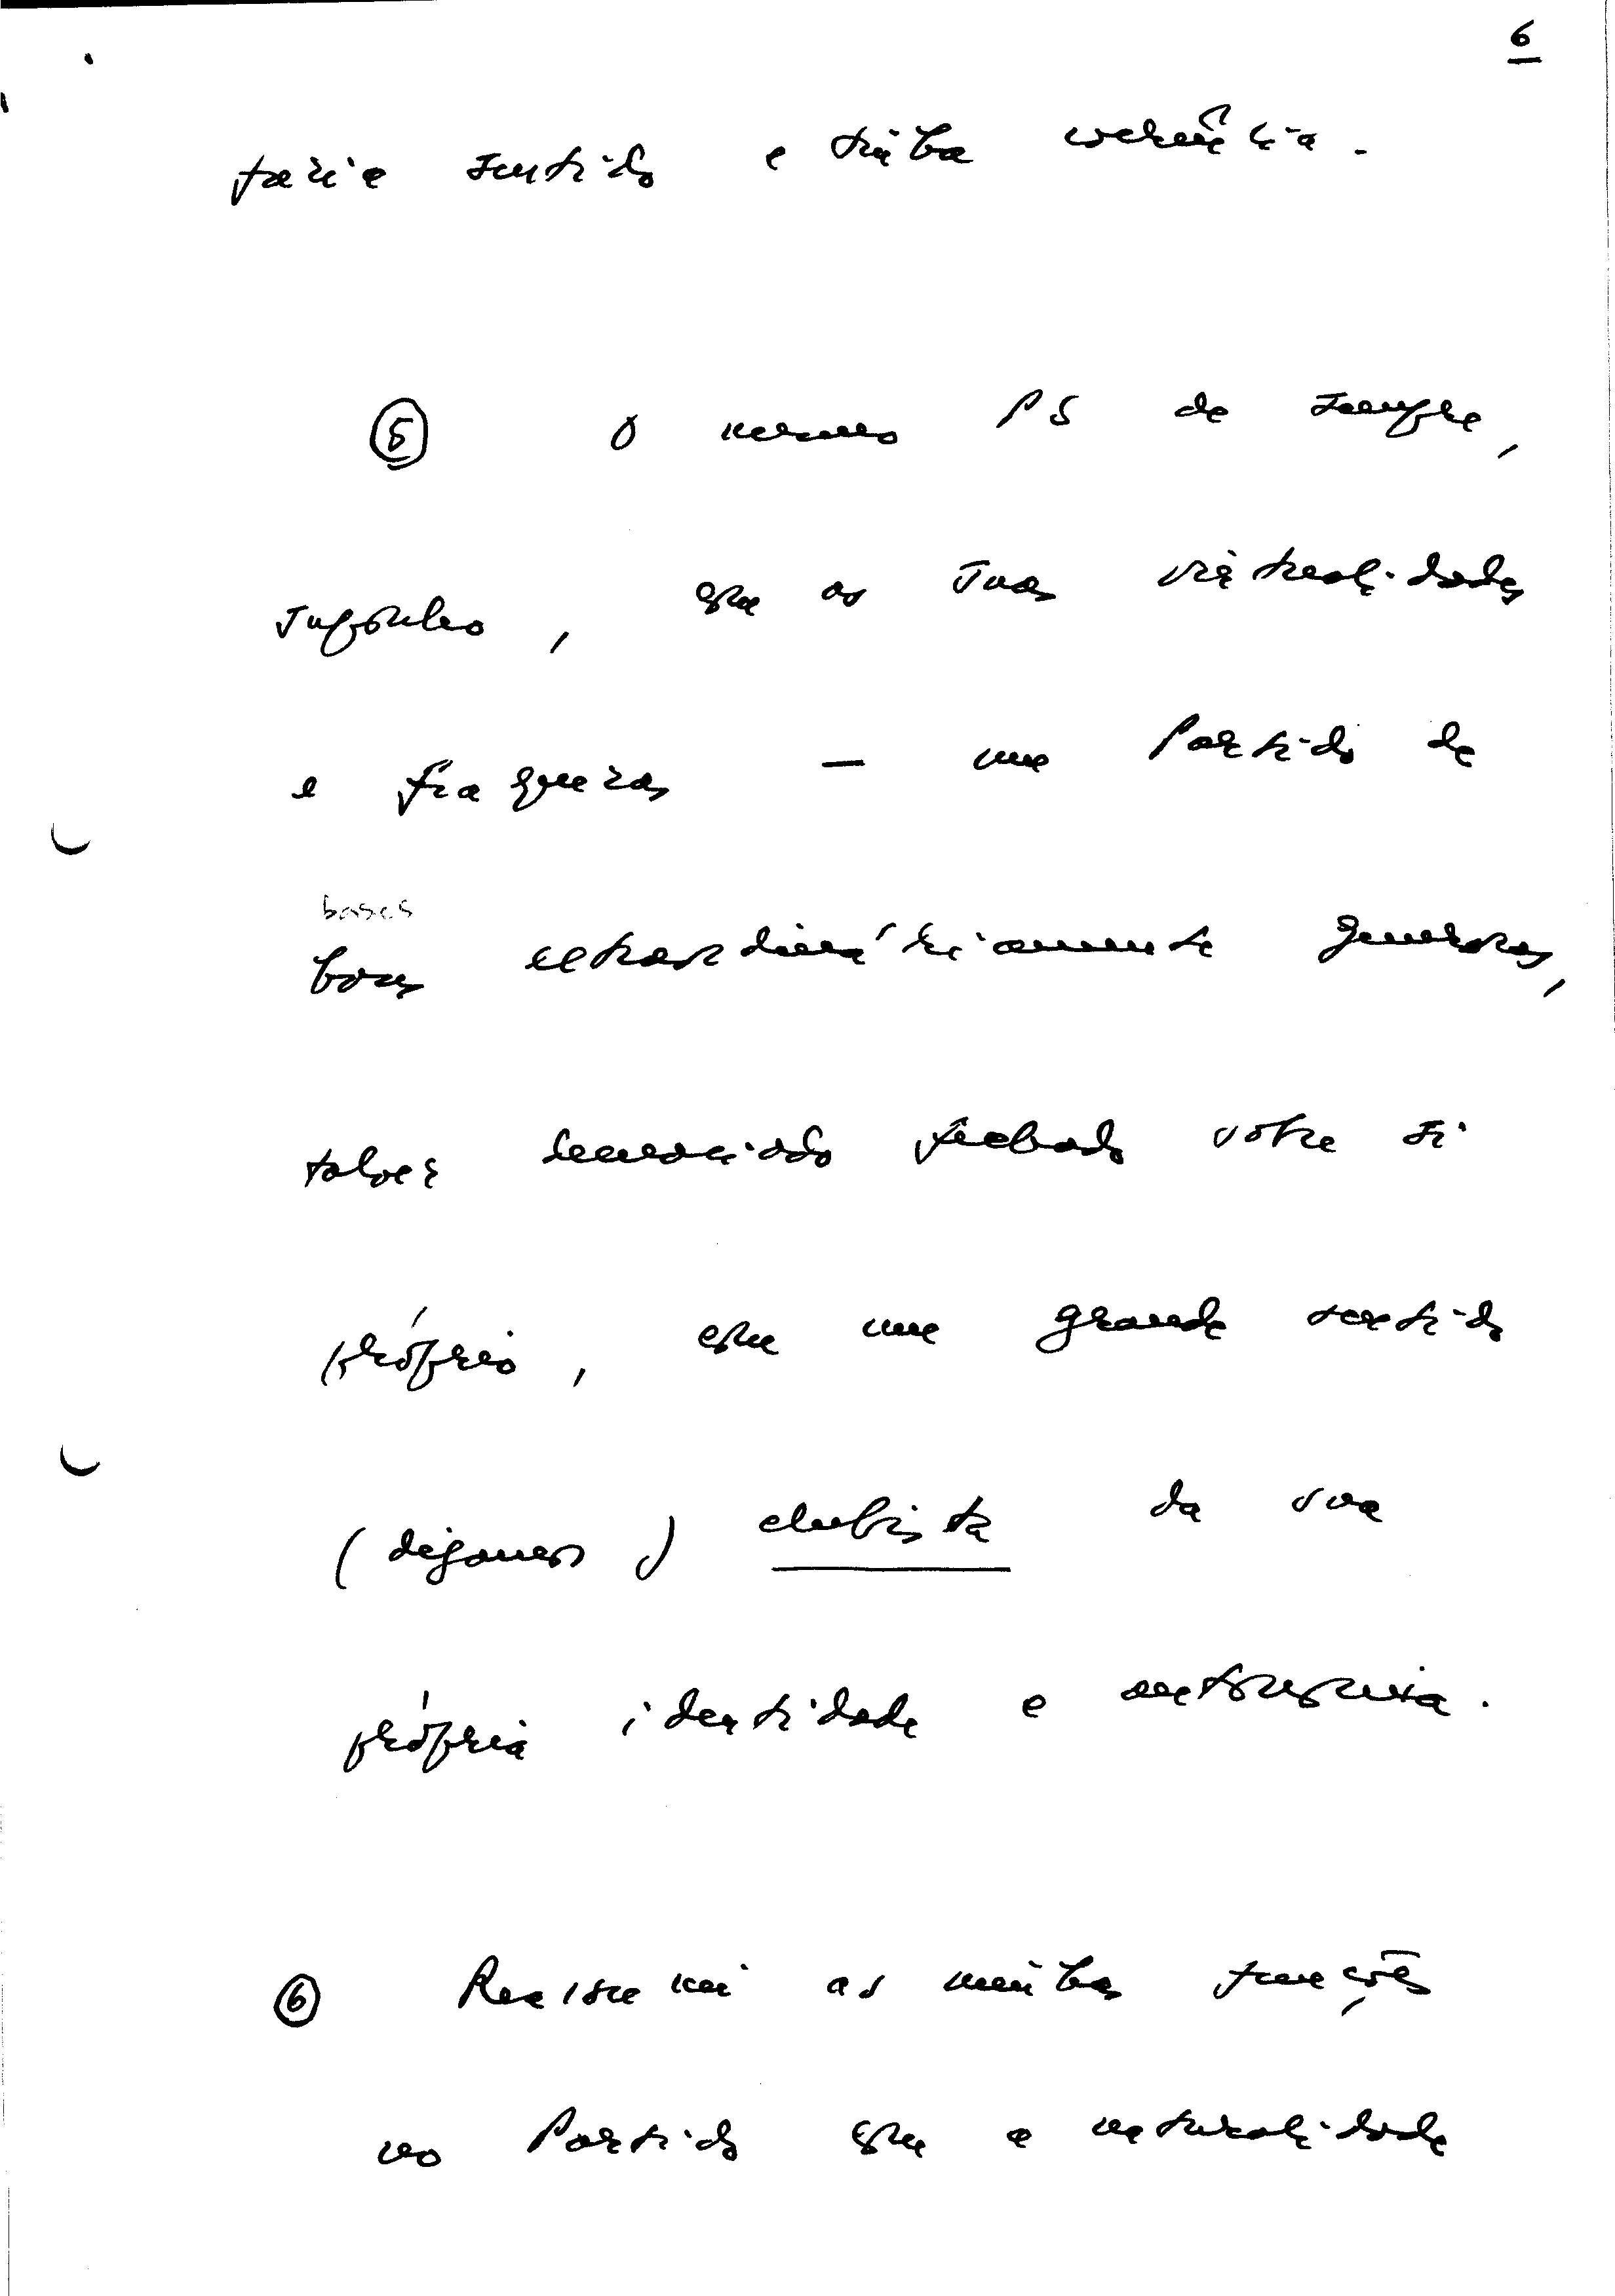 6
fazia sentido e tinha coerência.
⑤ O mesmo PS de sempre,
suponho, com as suas virtualidades
e fraquezas — um Partido de
bases
bases extraordinàriamente generosas,
talvez demasiado fechado sobre si
próprio, com um grande sentido
(digamos) clubista da sua
própria identidade e autonomia.
⑥ Reassumi as minhas funções
no Partido com a naturalidade